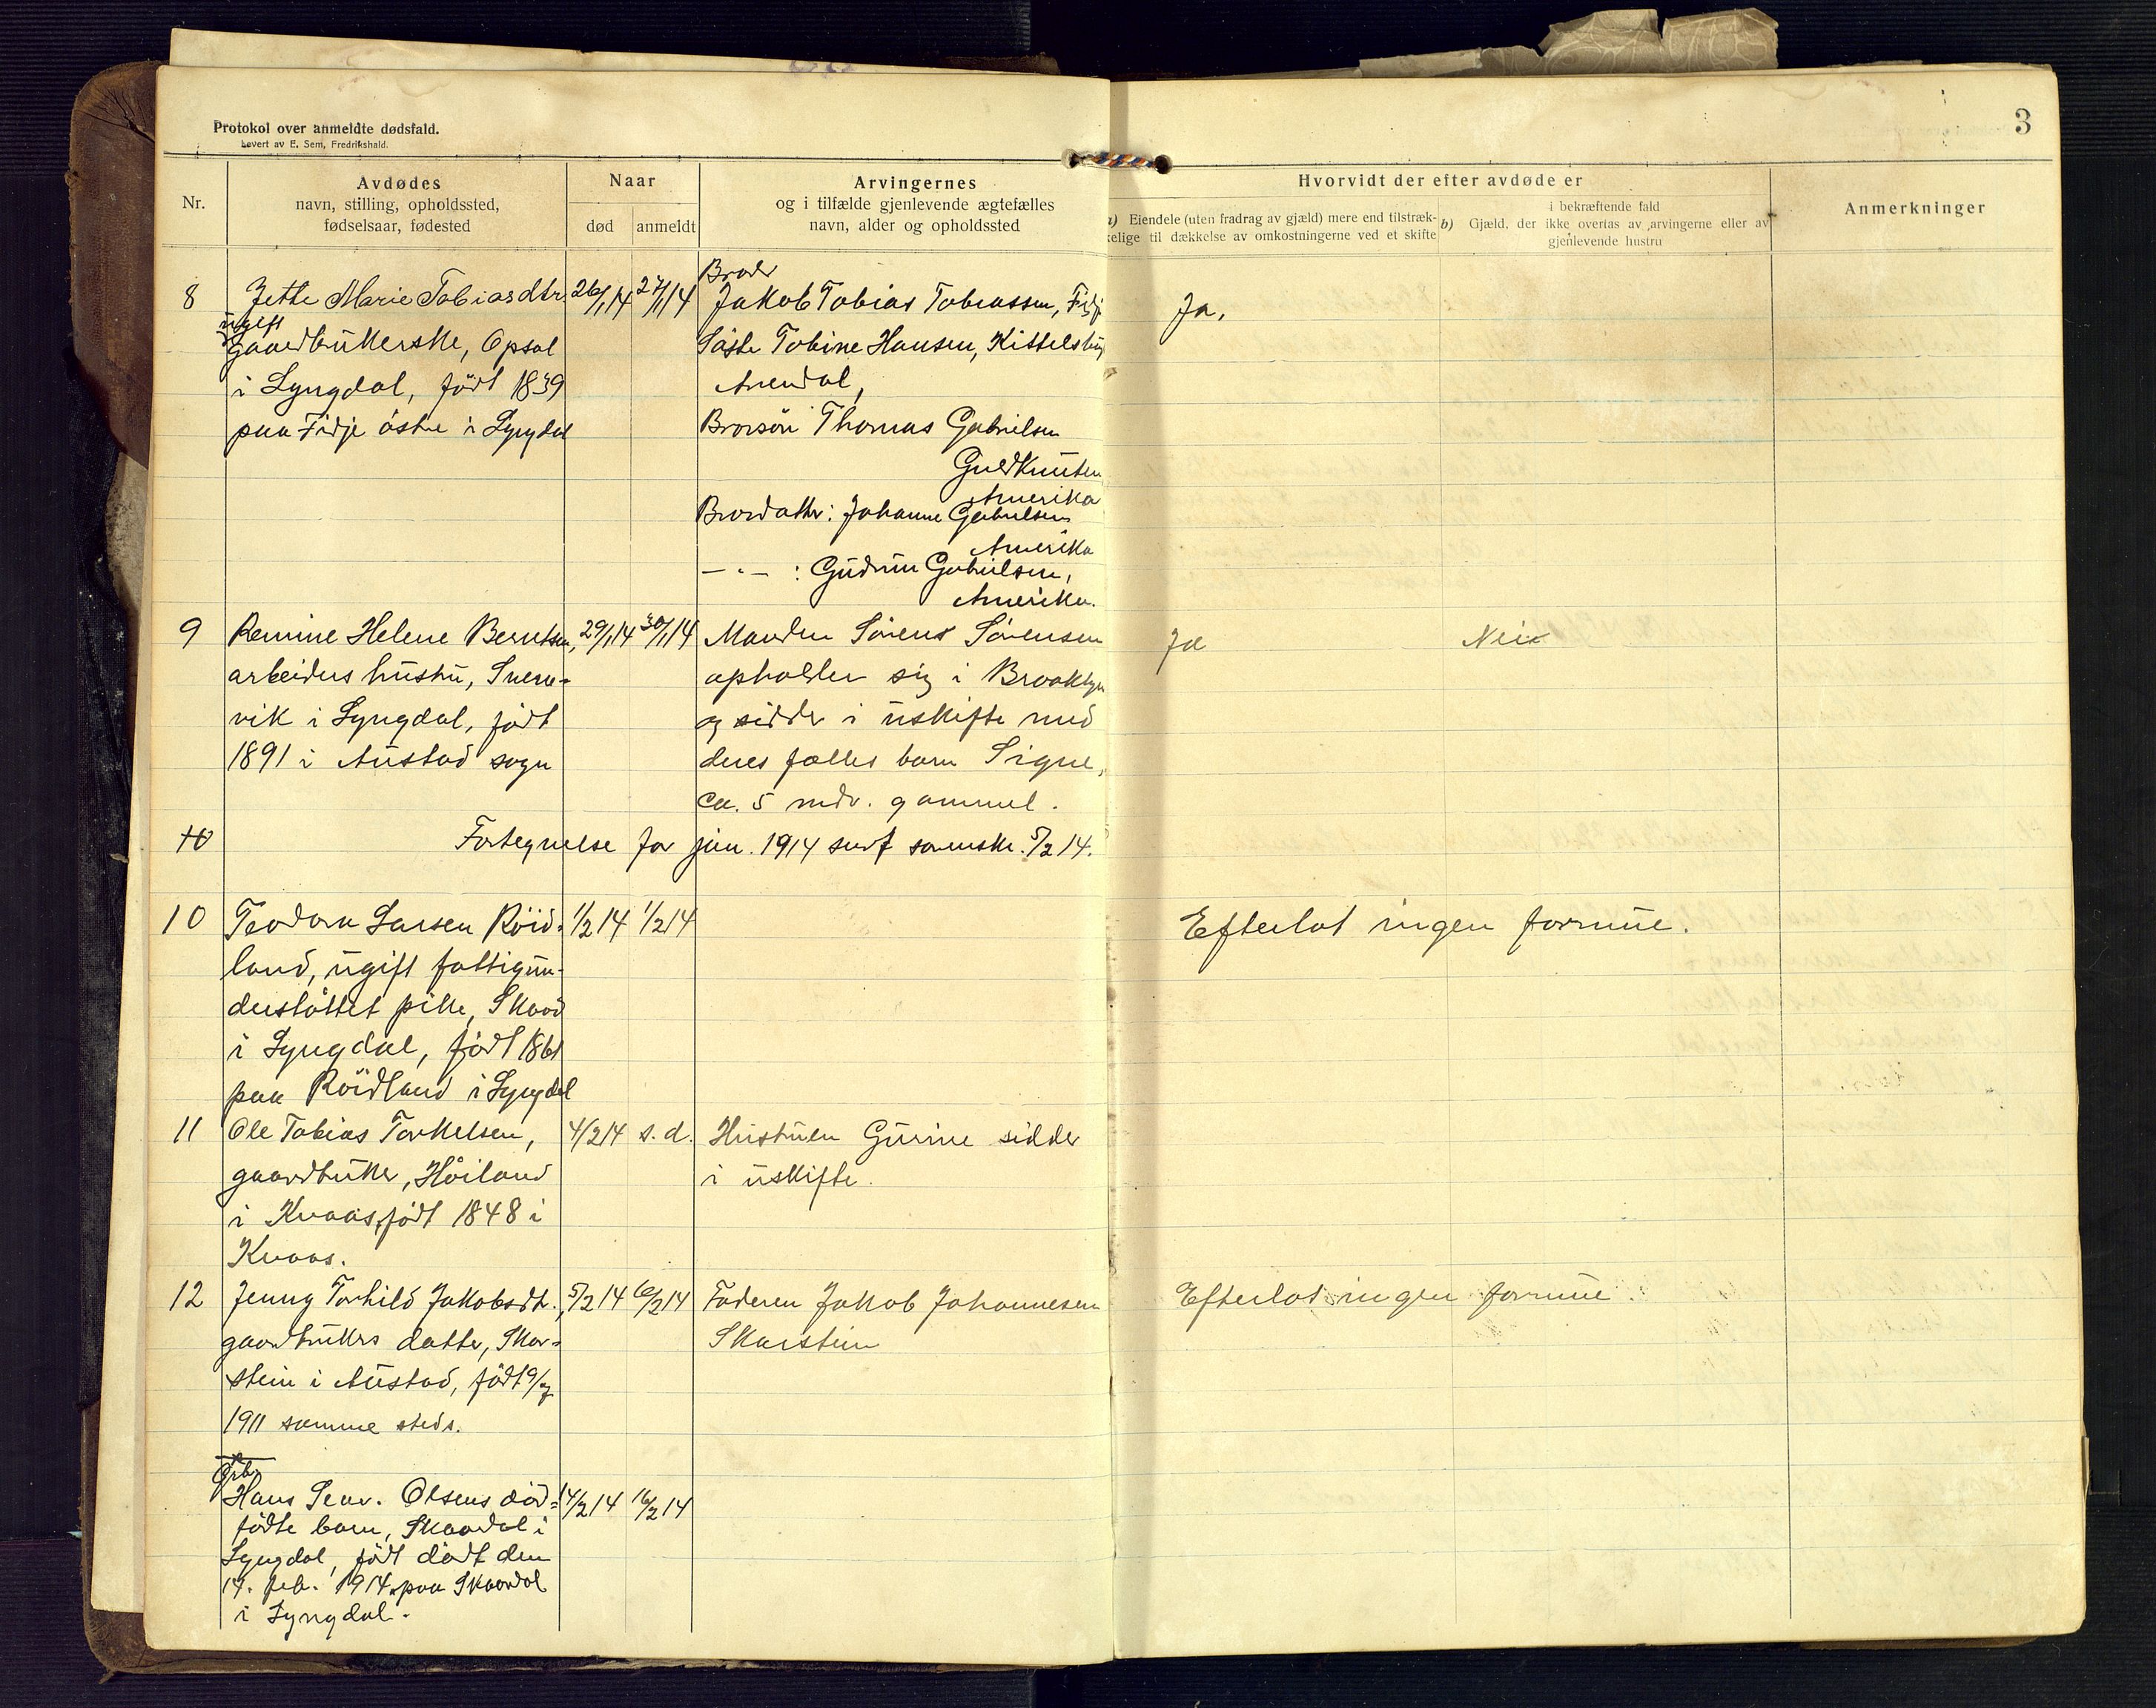 3
Protokol over anmeldte dødsfald.
Levert av E. Sem, Fredrikshald.
Nr.
Avdødes
navn, stilling, opholdssted,
fødselsaar, fødested
Naar
død
anmeldt
Arvingernes
og i tilfælde gjenlevende ægtefælles
navn, alder og opholdssted
Hvorvidt der efter avdøde er
a) Eiendele (uten fradrag av gjæld) mere end tilstræk-
kelige til dækkelse av omkostningerne ved et skifte
i bekræftende fald
b) Gjæld, der ikke overtas av arvingerne eller av
gjenlevende hustru
Anmerkninger
8 Jette Marie Tobiasdtr. 26/1 14 27/1 14
ugift
gaardbrukerske, Opsal
i Lyngdal, født 1839
paa Fidje østre i Lyngdal
Broder
Jakob Tobias Tobiassen, Fidje
Søster Tobine Hansen, Kittelsbug
Arendal,
Brorsøn Thomas Gabrielsen
Amerika
Brordatter: Johanne Gabrielsen
Amerika
— " — : Gudrun Gabrielsen,
Amerika.
Ja.
9 Remine Helene Berntsen, 29/1 14 30/1 14
arbeiders hustru, Snere-
vik i Lyngdal, født
1891 i Austad sogn
Manden Sørens Sørensen
opholder sig i Brooklyn
og sidder i uskifte med
deres fælles barn Signe,
ca. 5 mdr. gammel.
Ja
Nei
10 Fortegnelse for jan. 1914 sendt sorenskr. 5/2 14.
10 Teodora Larsen Röid- 1/2 14 1/2 14
land, ugift fattigun-
derstøttet pike, Skaad
i Lyngdal, født 1861
paa Röidland i Lyngdal
Efterlot ingen formue.
11 Ole Tobias Torkelsen, 4/2 14 s. d.
gaardbruker, Høiland
i Kvaas, født 1848 i
Kvaas.
Hustruen Gurine sidder
i uskifte.
12 Jenny Torhild Jakobsdt., 5/2 14 6/2 14
gaardbrukers datter, Skar-
stein i Austad, født 9/7
1911 samme steds.
Faderen Jakob Johannesen
Skarstein
Efterlot ingen formue.
Grbr.
Hans Severin Olsens død- 14/2 14 16/2 14
fødte barn, Skaardal i
Lyngdal, født dødt den
14. feb. 1914 paa Skaardal
i Lyngdal.